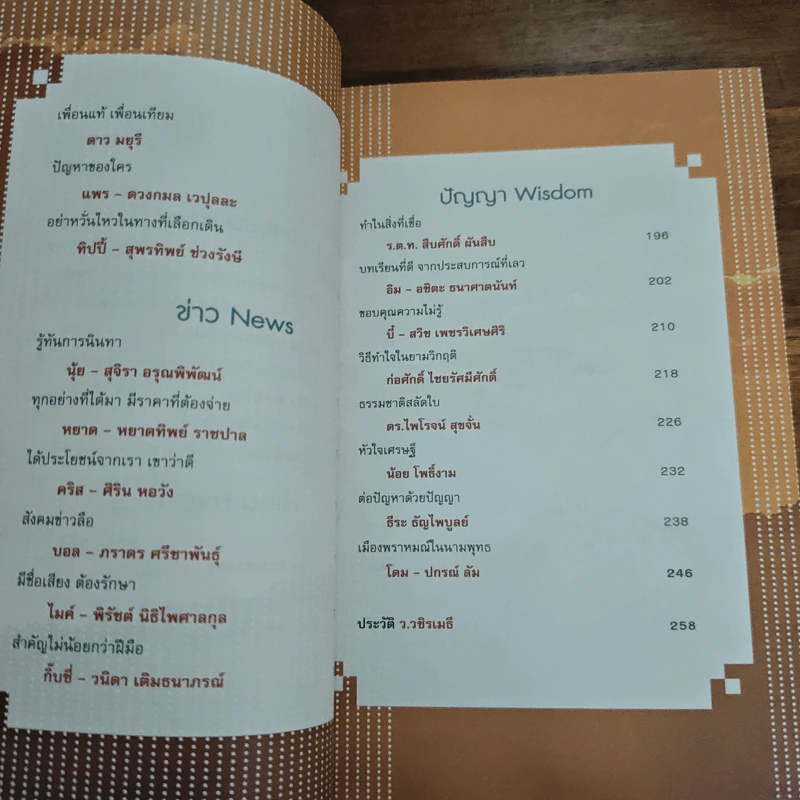 เพื่อนแท้ เพื่อนเทียม
ดาว มยุรี
ปัญหาของใคร
แพร – ดวงกมล เวปุลละ
อย่าหวั่นไหวในทางที่เลือกเดิน
ทิปปี้ – สุพรทิพย์ ช่วงรังษี
ข่าว News
รู้ทันการนินทา
นุ้ย – สุจิรา อรุณพิพัฒน์
ทุกอย่างที่ได้มา มีราคาที่ต้องจ่าย
หยาด – หยาดทิพย์ ราชปาล
ได้ประโยชน์จากเรา เขาว่าดี
คริส – ศิริน หอวัง
สังคมข่าวลือ
บอล – ภราดร ศรีชาพันธุ์
มีชื่อเสียง ต้องรักษา
ไมค์ – พิรัชต์ นิธิไพศาลกุล
สำคัญไม่น้อยกว่าฝีมือ
กิ๊บซี่ – วนิดา เติมธนาภรณ์
ปัญญา Wisdom
ทำในสิ่งที่เชื่อ
ร.ต.ท. สืบศักดิ์ ผันสืบ 196
บทเรียนที่ดี จากประสบการณ์ที่เลว
อิม – อชิตะ ธนาศาตนันท์ 202
ขอบคุณความไม่รู้
บี๋ – สวิช เพชรวิเศษศิริ 210
วิธีทำใจในยามวิกฤติ
ก่อศักดิ์ ไชยรัศมีศักดิ์ 218
ธรรมชาติสลัดใบ
ดร.ไพโรจน์ สุขจั่น 226
หัวใจเศรษฐี
น้อย โพธิ์งาม 232
ต่อปัญหาด้วยปัญญา
ธีระ ธัญไพบูลย์ 238
เมืองพราหมณ์ในนามพุทธ
โดม – ปกรณ์ ลัม 246
ประวัติ ว.วชิรเมธี 258